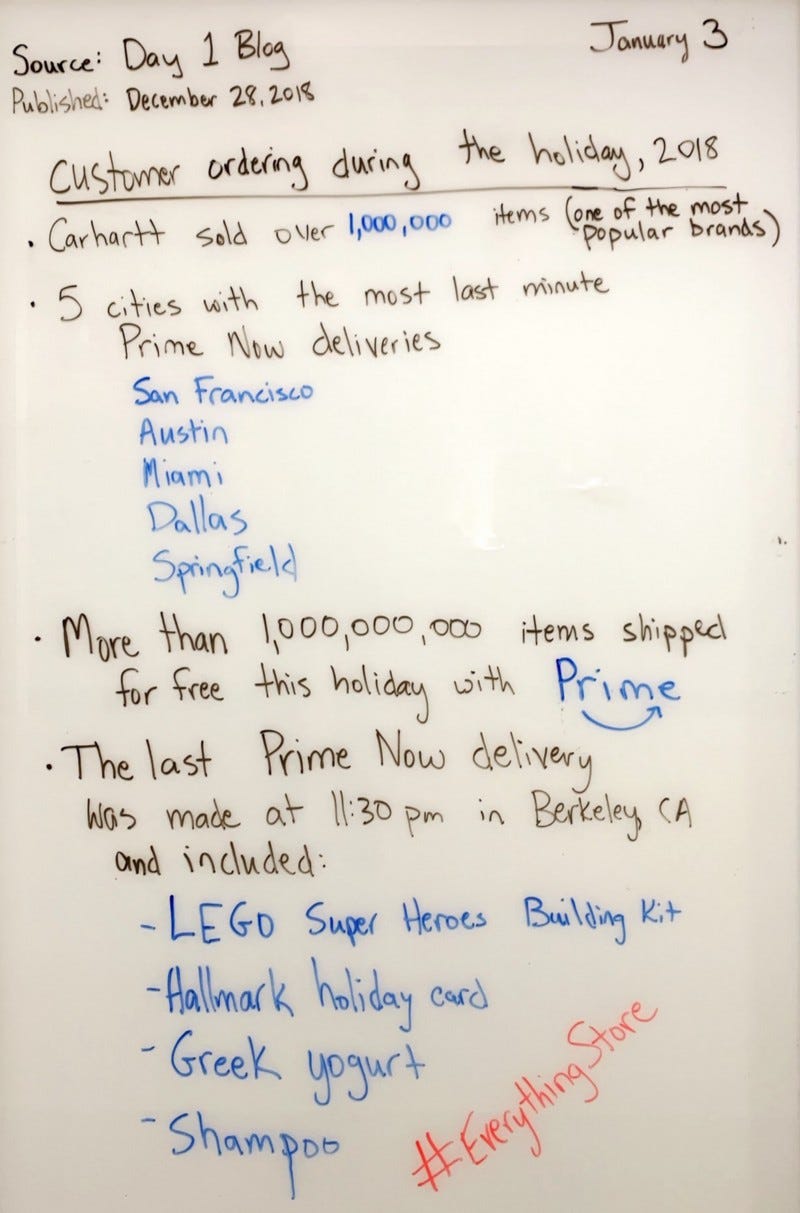 Source: Day 1 Blog
January 3
Published: December 28, 2018
Customer ordering during the holiday, 2018
• Carhartt sold over 1,000,000 items (one of the most popular brands)
• 5 cities with the most last minute
Prime Now deliveries
San Francisco
Austin
Miami
Dallas
Springfield
• More than 1,000,000,000 items shipped
for free this holiday with Prime
• The last Prime Now delivery
was made at 11:30 pm in Berkeley, CA
and included:
- LEGO Super Heroes Building Kit
- Hallmark holiday card
- Greek yogurt
- Shampoo
#EverythingStore